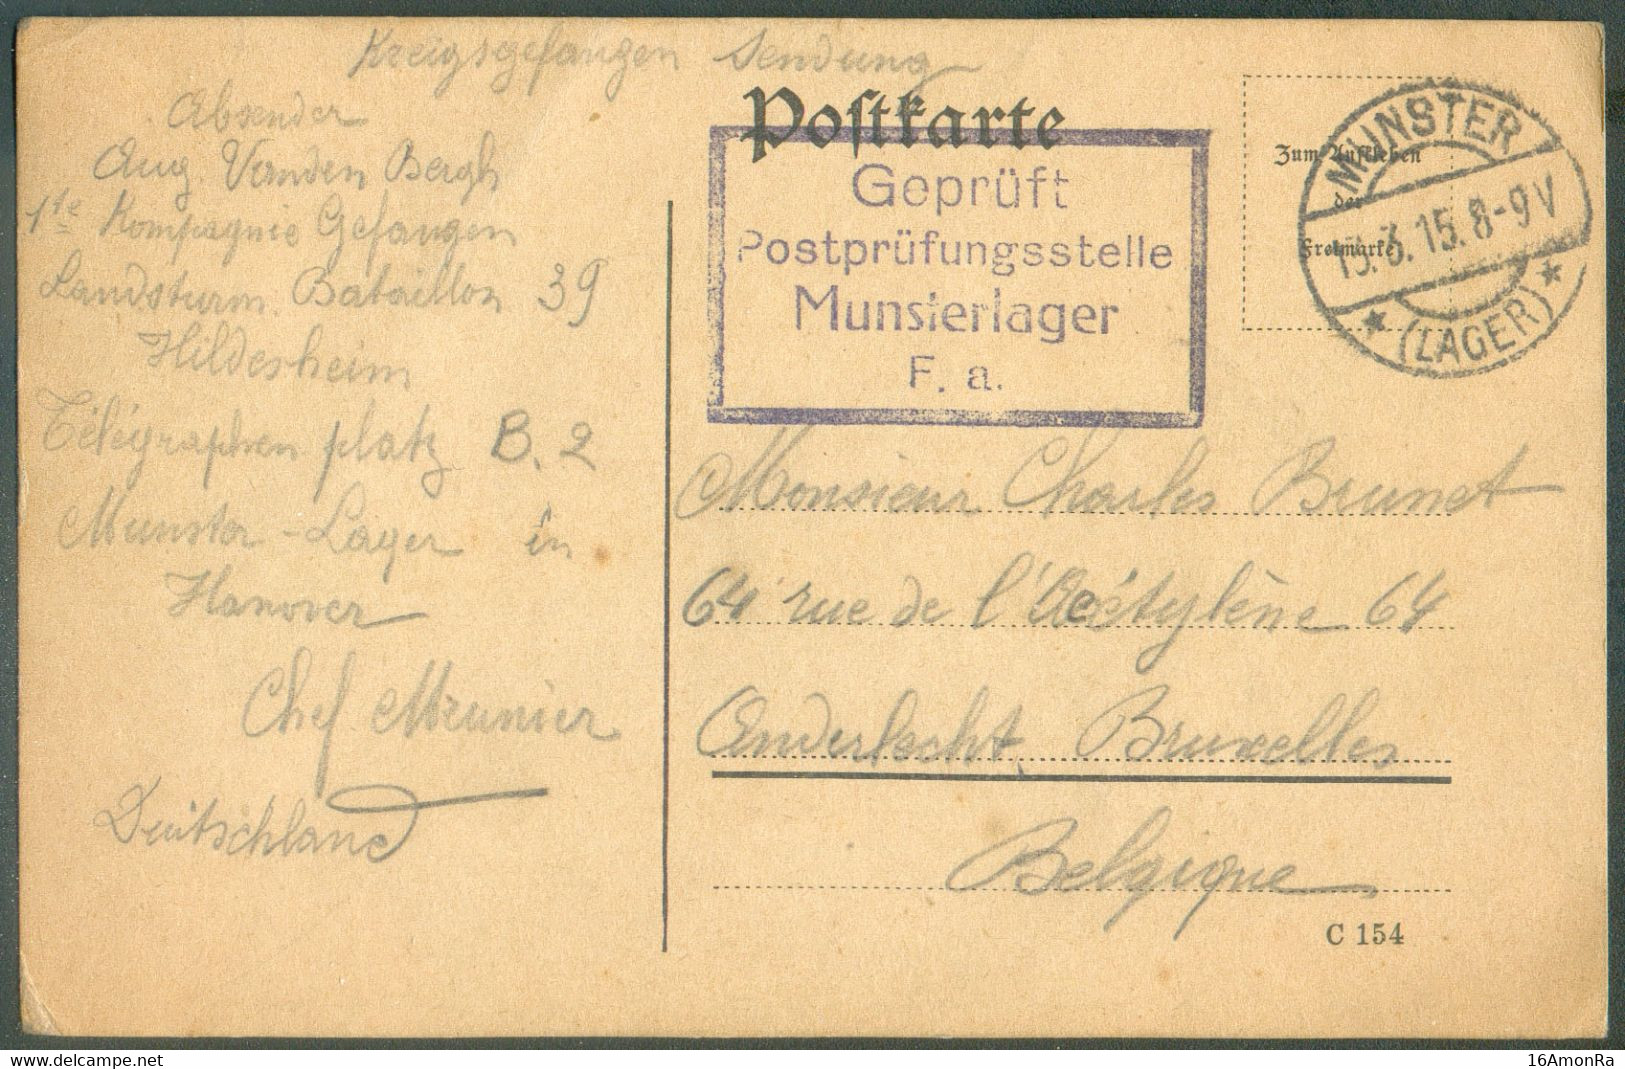 Kreigsgefangen Sendung
Postkarte
Absender
Aug. Vanden Bergh
1ste Kompagnie Gefangen
Landsturm Bataillon 39
Hildesheim
Télégraphen platz B. 2
Munster-Lager in
Hanover
Chef Meunier
Deutschland
Geprüft
Postprüfungsstelle
Munsterlager
F. a.
Zum Aufkleben
der
Freimarke
MUNSTER
15. 3. 15. 8-9 V
* (LAGER) *
Monsieur Charles Brunet
64 rue de l'Acétylène 64
Anderlecht, Bruxelles
Belgique
C 154
delcampe.net
16AmonRa